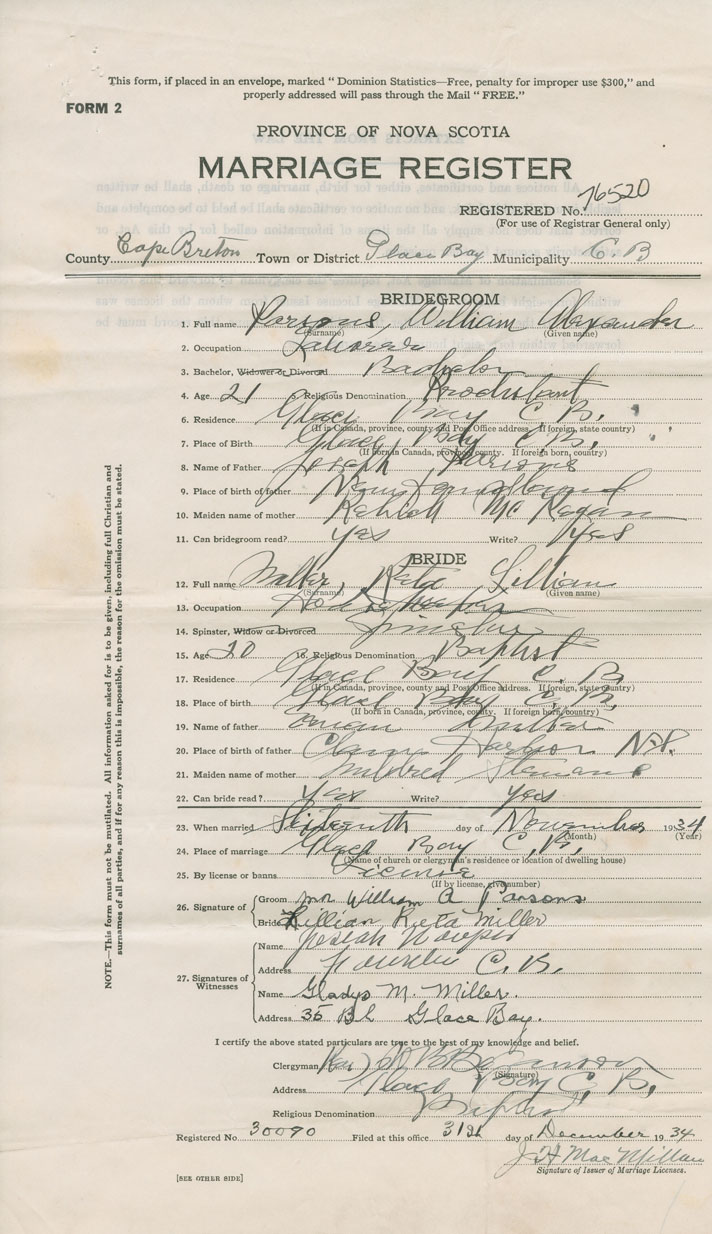 This form, if placed in an envelope, marked " Dominion Statistics—Free, penalty for improper use $300," and
properly addressed will pass through the Mail " FREE."
FORM 2
PROVINCE OF NOVA SCOTIA
MARRIAGE REGISTER
REGISTERED No. 76520
(For use of Registrar General only)
County Cape Breton Town or District Glace Bay Municipality C. B
BRIDEGROOM
1. Full name Parsons, William Alexander
(Surname) (Given name)
2. Occupation Laborer
3. Bachelor, Widower or Divorced Bachelor
4. Age 21 Religious Denomination Prodestant
6. Residence Glace Bay C. B.
(If in Canada, province, county and Post Office address. If foreign, state country)
7. Place of Birth Glace Bay C. B.
(If born in Canada, province, county. If foreign born, country)
8. Name of Father Joseph Parsons
9. Place of birth of father Newfoundland
10. Maiden name of mother
11. Can bridegroom read? yes Write? yes
BRIDE
12. Full name Lillian
(Surname) (Given name)
13. Occupation
14. Spinster, Widow or Divorced Spinster
15. Age 20 16. Religious Denomination Baptist
17. Residence Glace Bay C. B.
(If in Canada, province, county and Post Office address. If foreign, state country)
18. Place of birth Glace Bay C. B.
(If born in Canada, province, county. If foreign born, country)
19. Name of father Miller
20. Place of birth of father Harbor Nfl.
21. Maiden name of mother Mildred
22. Can bride read? yes Write? yes
23. When married Sixteenth day of November 1934
(Month) (Year)
24. Place of marriage Glace Bay C. B.
(Name of church or clergyman's residence or location of dwelling house)
25. By license or banns License
(If by license, give number)
26. Signature of
Groom Mr William A Parsons
Bride Lillian Rieta Miller
27. Signatures of Witnesses
Name
Address C. B.
Name Gladys M. Miller.
Address 35 Glace Bay.
I certify the above stated particulars are true to the best of my knowledge and belief.
Clergyman
(Signature)
Address Glace Bay C. B.
Religious Denomination Baptist
Registered No 30090 Filed at this office 31st day of December 1934
J H MacMillan
Signature of Issuer of Marriage Licenses.
[SEE OTHER SIDE]
NOTE.—This form must not be mutilated. All information asked for is to be given, including full Christian and
surnames of all parties, and if for any reason this is impossible, the reason for the omission must be stated.